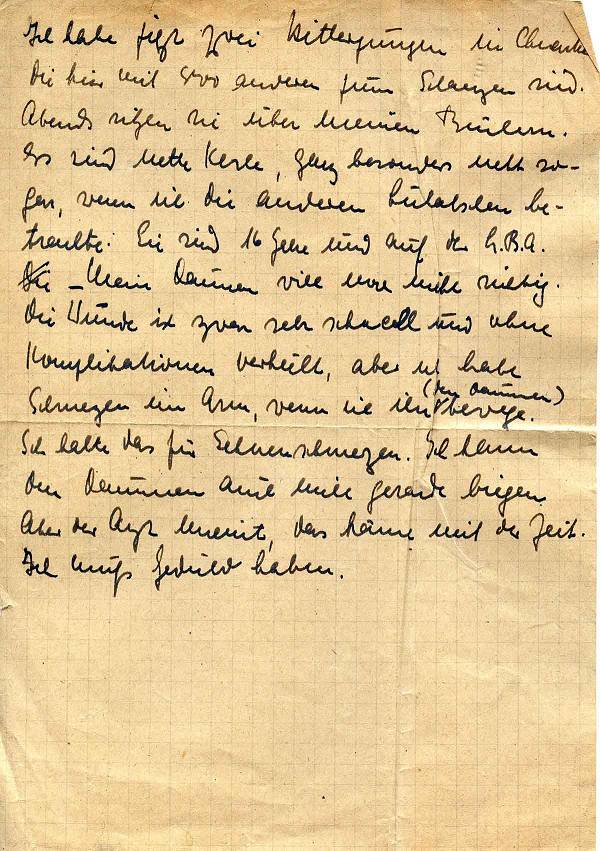 Ich habe jetzt zwei Hitlerjungen in
die hier mit anderen zum Schanzen sind.
Abends sitzen sie über meinen Büchern.
Es sind nette Kerle, ganz besonders nett so-
gar, wenn ich die anderen be-
trachte. Sie sind 16 Jahre und auf der L.B.A.
– Mein Daumen will noch nicht richtig.
Die Wunde ist zwar sehr schnell und ohne
Komplikationen verheilt, aber ich habe
Schmerzen im Arm, wenn ich ihn (den Daumen) bewege.
Ich halte das für Sehnenschmerzen. Ich kann
den Daumen auch nicht gerade biegen
Aber der Arzt meint, das käme mit der Zeit.
Ich muß Geduld haben.